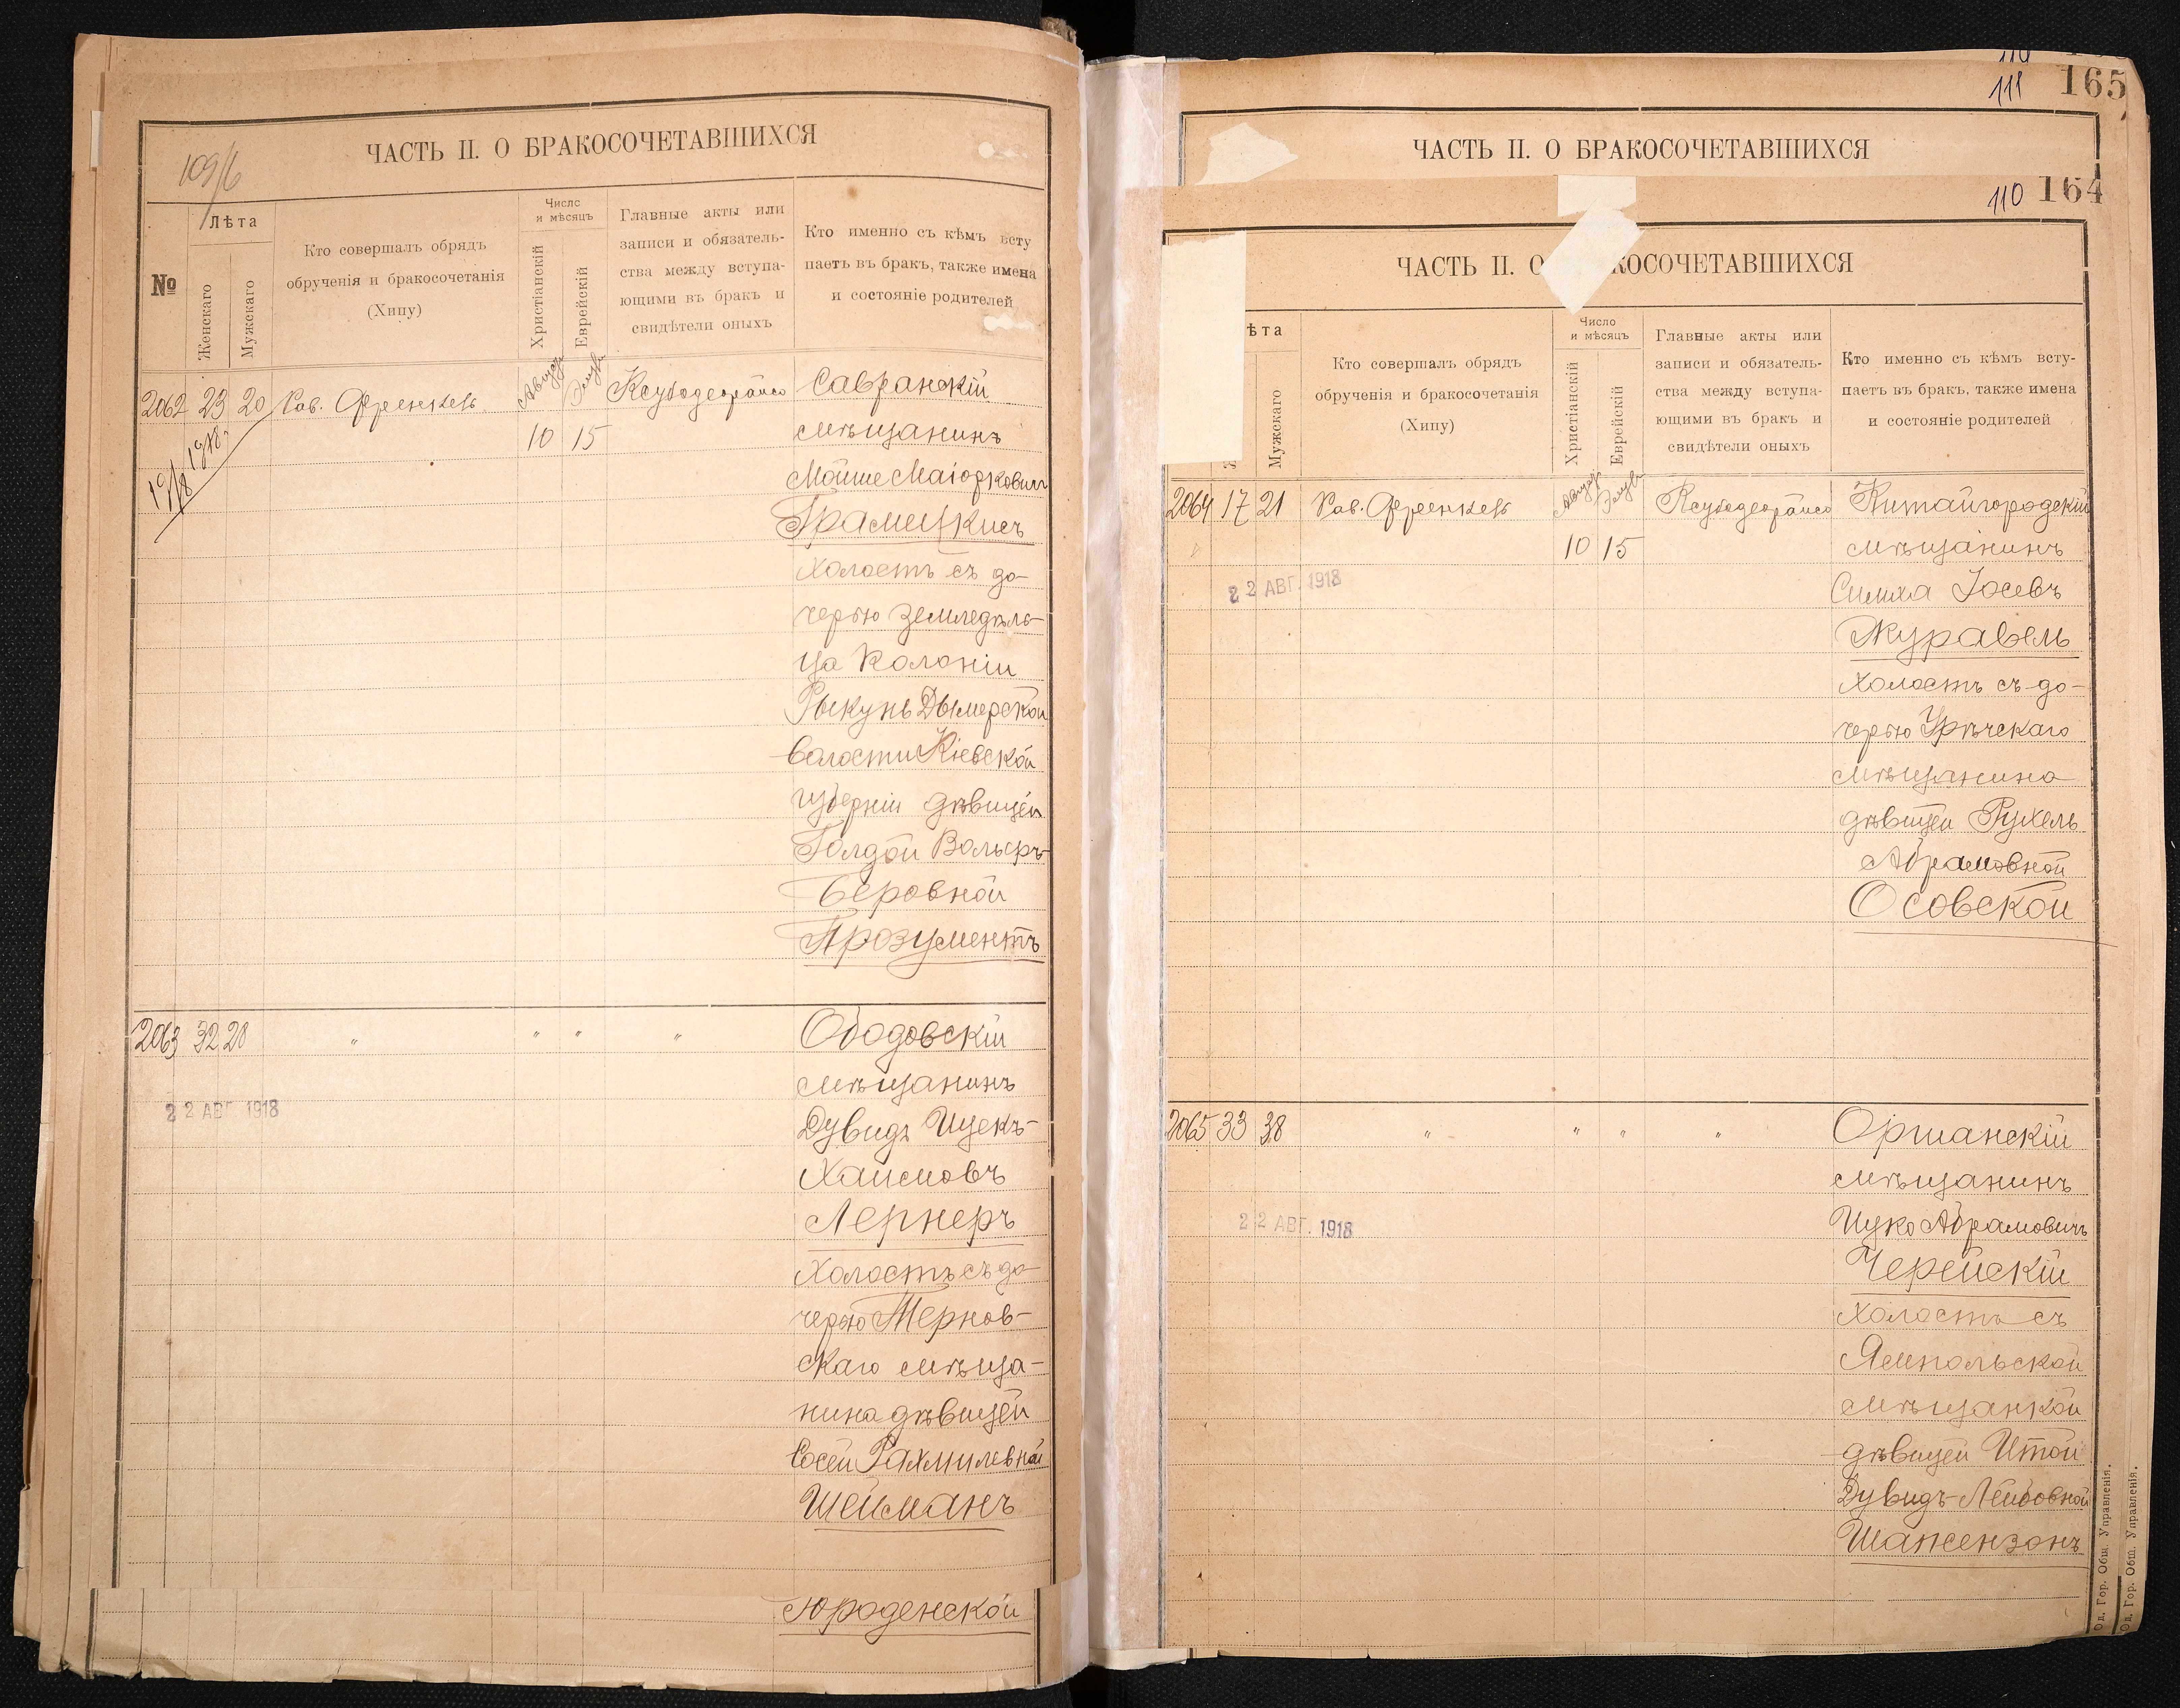 109/6
ЧАСТЬ II. О БРАКОСОЧЕТАВШИХСЯ
№
Лѣта
Женскаго
Мужскаго
Кто совершалъ обрядъ
обрученія и бракосочетанія
(Хипу)
Число
и мѣсяцъ
Христіанскій
Еврейскій
Главные акты или
записи и обязатель-
ства между вступа-
ющими въ бракъ и
свидѣтели оныхъ
Кто именно съ кѣмъ всту
паетъ въ бракъ, также имена
и состояніе родителей
2062 23 20 Рав. Френкель Августъ
10 15
19/8 1918.
Савранскій
мѣщанинъ
Мойше Маіорковичъ
холостъ съ до-
черью земледѣль-
ца колоніи
Рыкунь Дымерской
волости Кіевской
губерніи дѣвицей
Голдой Вольфъ-
Беровной
Прозументъ
2063 32 28 " " " "
22 АВГ. 1918
Ободовскій
мѣщанинъ
Дувидъ Ицекъ-
Хаимовъ
Лернеръ
холостъ съ до-
черью Тернов-
скаго мѣща-
нина дѣвицей
Сосей Рахмилевной
Шейманъ
110
111 165
ЧАСТЬ II. О БРАКОСОЧЕТАВШИХСЯ
110 164
ЧАСТЬ II. О КОСОЧЕТАВШИХСЯ
ѣта
Мужскаго
Кто совершалъ обрядъ
обрученія и бракосочетанія
(Хипу)
Число
и мѣсяцъ
Христіанскій
Еврейскій
Главные акты или
записи и обязатель-
ства между вступа-
ющими въ бракъ и
свидѣтели оныхъ
Кто именно съ кѣмъ всту-
паетъ въ бракъ, также имена
и состояніе родителей
2064 17 21 Рав. Френкель Августъ
10 15
22 АВГ. 1918
Китайгородскій
мѣщанинъ
Симха Іосевъ
Журавель
холостъ съ до-
черью Урѣчскаго
мѣщанина
дѣвицей Рухель
Абрамовной
Осовской
2065 33 38 " " " "
22 АВГ. 1918
Оршанскій
мѣщанинъ
Ицко Абрамовичъ
Черейскій
холостъ съ
Ямпольской
мѣщанкой
дѣвицей Итой
Дувидъ-Лейбовной
Шапсензонъ
Од. Гор. Общ. Управленія.
Од. Гор. Общ. Управленія.